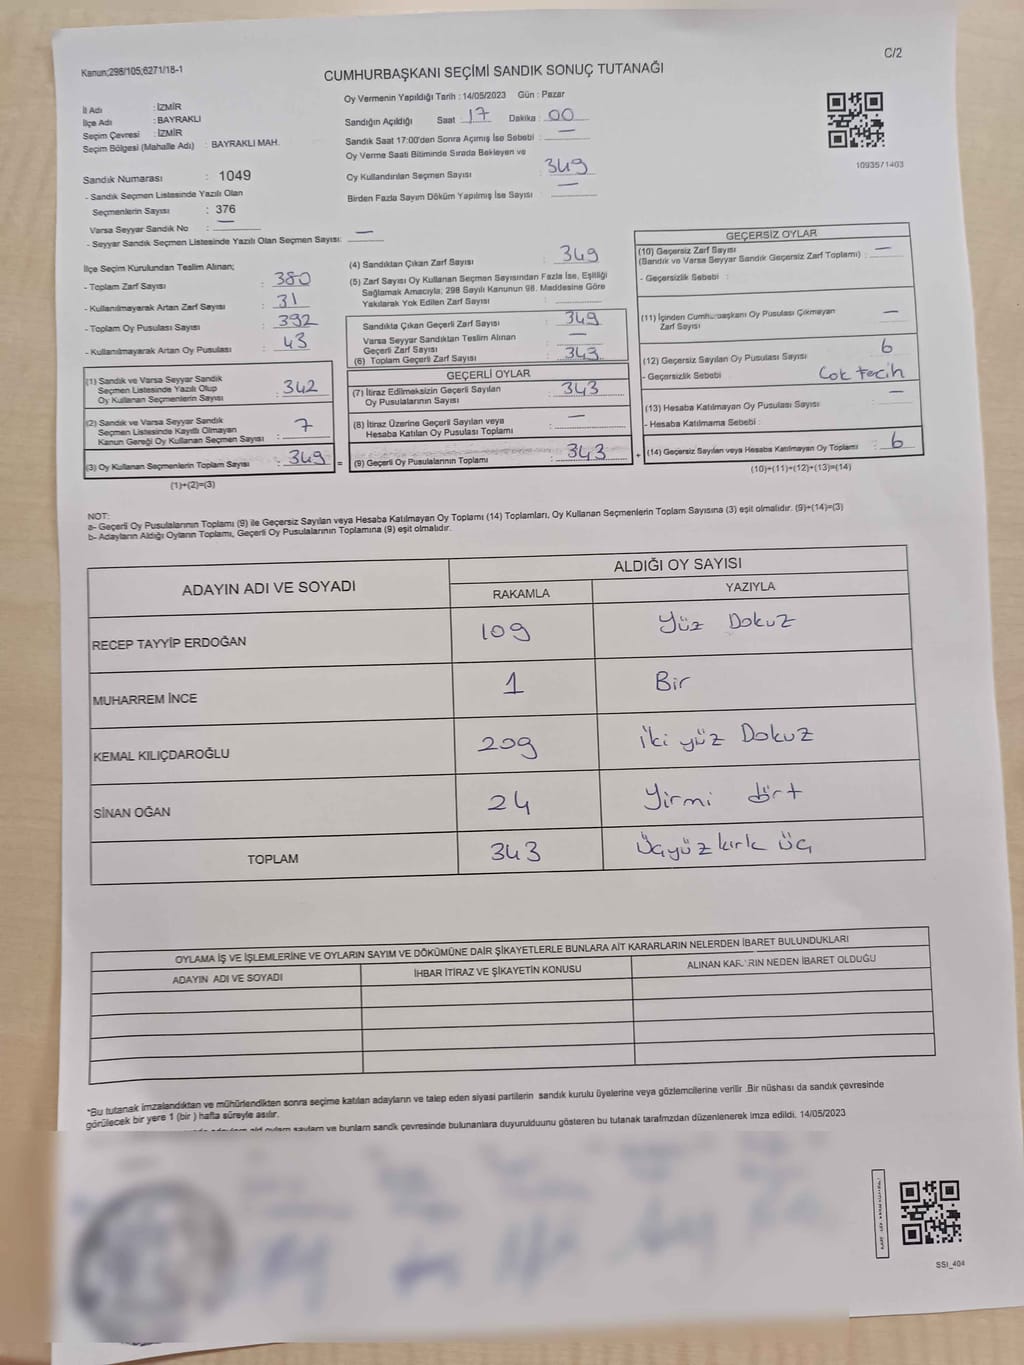 Kanun;298/105;6271/18-1
C/2
CUMHURBAŞKANI SEÇİMİ SANDIK SONUÇ TUTANAĞI
İl Adı : İZMİR
İlçe Adı : BAYRAKLI
Seçim Çevresi : İZMİR
Seçim Bölgesi (Mahalle Adı) : BAYRAKLI MAH.
Sandık Numarası : 1049
- Sandık Seçmen Listesinde Yazılı Olan
Seçmenlerin Sayısı : 376
Varsa Seyyar Sandık No : —
- Seyyar Sandık Seçmen Listesinde Yazılı Olan Seçmen Sayısı: —
Oy Vermenin Yapıldığı Tarih : 14/05/2023 Gün : Pazar
Sandığın Açıldığı Saat : 17 Dakika : 00
Sandık Saat 17:00'den Sonra Açımış İse Sebebi : —
Oy Verme Saati Bitiminde Sırada Bekleyen ve
Oy Kullandırılan Seçmen Sayısı : 349
Birden Fazla Sayım Döküm Yapılmış İse Sayısı : —
1093571403
İlçe Seçim Kurulundan Teslim Alınan;
- Toplam Zarf Sayısı : 380
- Kullanılmayarak Artan Zarf Sayısı : 31
- Toplam Oy Pusulası Sayısı : 392
- Kullanılmayarak Artan Oy Pusulası : 43
(1) Sandık ve Varsa Seyyar Sandık
Seçmen Listesinde Yazılı Olup
Oy Kullanan Seçmenlerin Sayısı : 342
(2) Sandık ve Varsa Seyyar Sandık
Seçmen Listesinde Kayıtlı Olmayan
Kanun Gereği Oy Kullanan Seçmen Sayısı : 7
(3) Oy Kullanan Seçmenlerin Toplam Sayısı : 349 =
(1)+(2)=(3)
(4) Sandıktan Çıkan Zarf Sayısı : 349
(5) Zarf Sayısı Oy Kullanan Seçmen Sayısından Fazla İse, Eşitliği
Sağlamak Amacıyla, 298 Sayılı Kanunun 98. Maddesine Göre
Yakılarak Yok Edilen Zarf Sayısı :
Sandıkta Çıkan Geçerli Zarf Sayısı : 349
Varsa Seyyar Sandıktan Teslim Alınan
Geçerli Zarf Sayısı : —
(6) Toplam Geçerli Zarf Sayısı : 343
GEÇERLİ OYLAR
(7) İtiraz Edilmeksizin Geçerli Sayılan
Oy Pusulalarının Sayısı : 343
(8) İtiraz Üzerine Geçerli Sayılan veya
Hesaba Katılan Oy Pusulası Toplamı : —
(9) Geçerli Oy Pusulalarının Toplamı : 343 +
GEÇERSİZ OYLAR
(10) Geçersiz Zarf Sayısı
(Sandık ve Varsa Seyyar Sandık Geçersiz Zarf Toplamı) : —
- Geçersizlik Sebebi :
(11) İçinden Cumhurbaşkanı Oy Pusulası Çıkmayan
Zarf Sayısı : —
(12) Geçersiz Sayılan Oy Pusulası Sayısı : 6
- Geçersizlik Sebebi : Çok tercih
(13) Hesaba Katılmayan Oy Pusulası Sayısı : —
- Hesaba Katılmama Sebebi :
(14) Geçersiz Sayılan veya Hesaba Katılmayan Oy Toplamı : 6
(10)+(11)+(12)+(13)=(14)
NOT:
a- Geçerli Oy Pusulalarının Toplamı (9) ile Geçersiz Sayılan veya Hesaba Katılmayan Oy Toplamı (14) Toplamları, Oy Kullanan Seçmenlerin Toplam Sayısına (3) eşit olmalıdır. (9)+(14)=(3)
b- Adayların Aldığı Oyların Toplamı, Geçerli Oy Pusulalarının Toplamına (9) eşit olmalıdır.
ADAYIN ADI VE SOYADI ALDIĞI OY SAYISI
RAKAMLA YAZIYLA
RECEP TAYYİP ERDOĞAN 109 Yüz Dokuz
MUHARREM İNCE 1 Bir
KEMAL KILIÇDAROĞLU 209 iki yüz Dokuz
SİNAN OĞAN 24 Yirmi dört
TOPLAM 343 Üçyüz kırk üç
OYLAMA İŞ VE İŞLEMLERİNE VE OYLARIN SAYIM VE DÖKÜMÜNE DAİR ŞİKAYETLERLE BUNLARA AİT KARARLARIN NELERDEN İBARET BULUNDUKLARI
ADAYIN ADI VE SOYADI İHBAR İTİRAZ VE ŞİKAYETİN KONUSU ALINAN KARARIN NEDEN İBARET OLDUĞU
*Bu tutanak imzalandıktan ve mühürlendikten sonra seçime katılan adayların ve talep eden siyasi partilerin sandık kurulu üyelerine veya gözlemcilerine verilir .Bir nüshası da sandık çevresinde
görülecek bir yere 1 (bir ) hafta süreyle asılır.
ve bunların sandık çevresinde bulunanlara duyurulduunu gösteren bu tutanak tarafmzdan düzenlenerek imza edildi. 14/05/2023
SSI_404